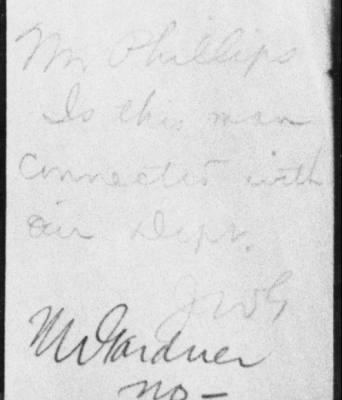 Mr. Phillips
Is this man
connected with
our Dept.
JWG
Mr Gardner
no -